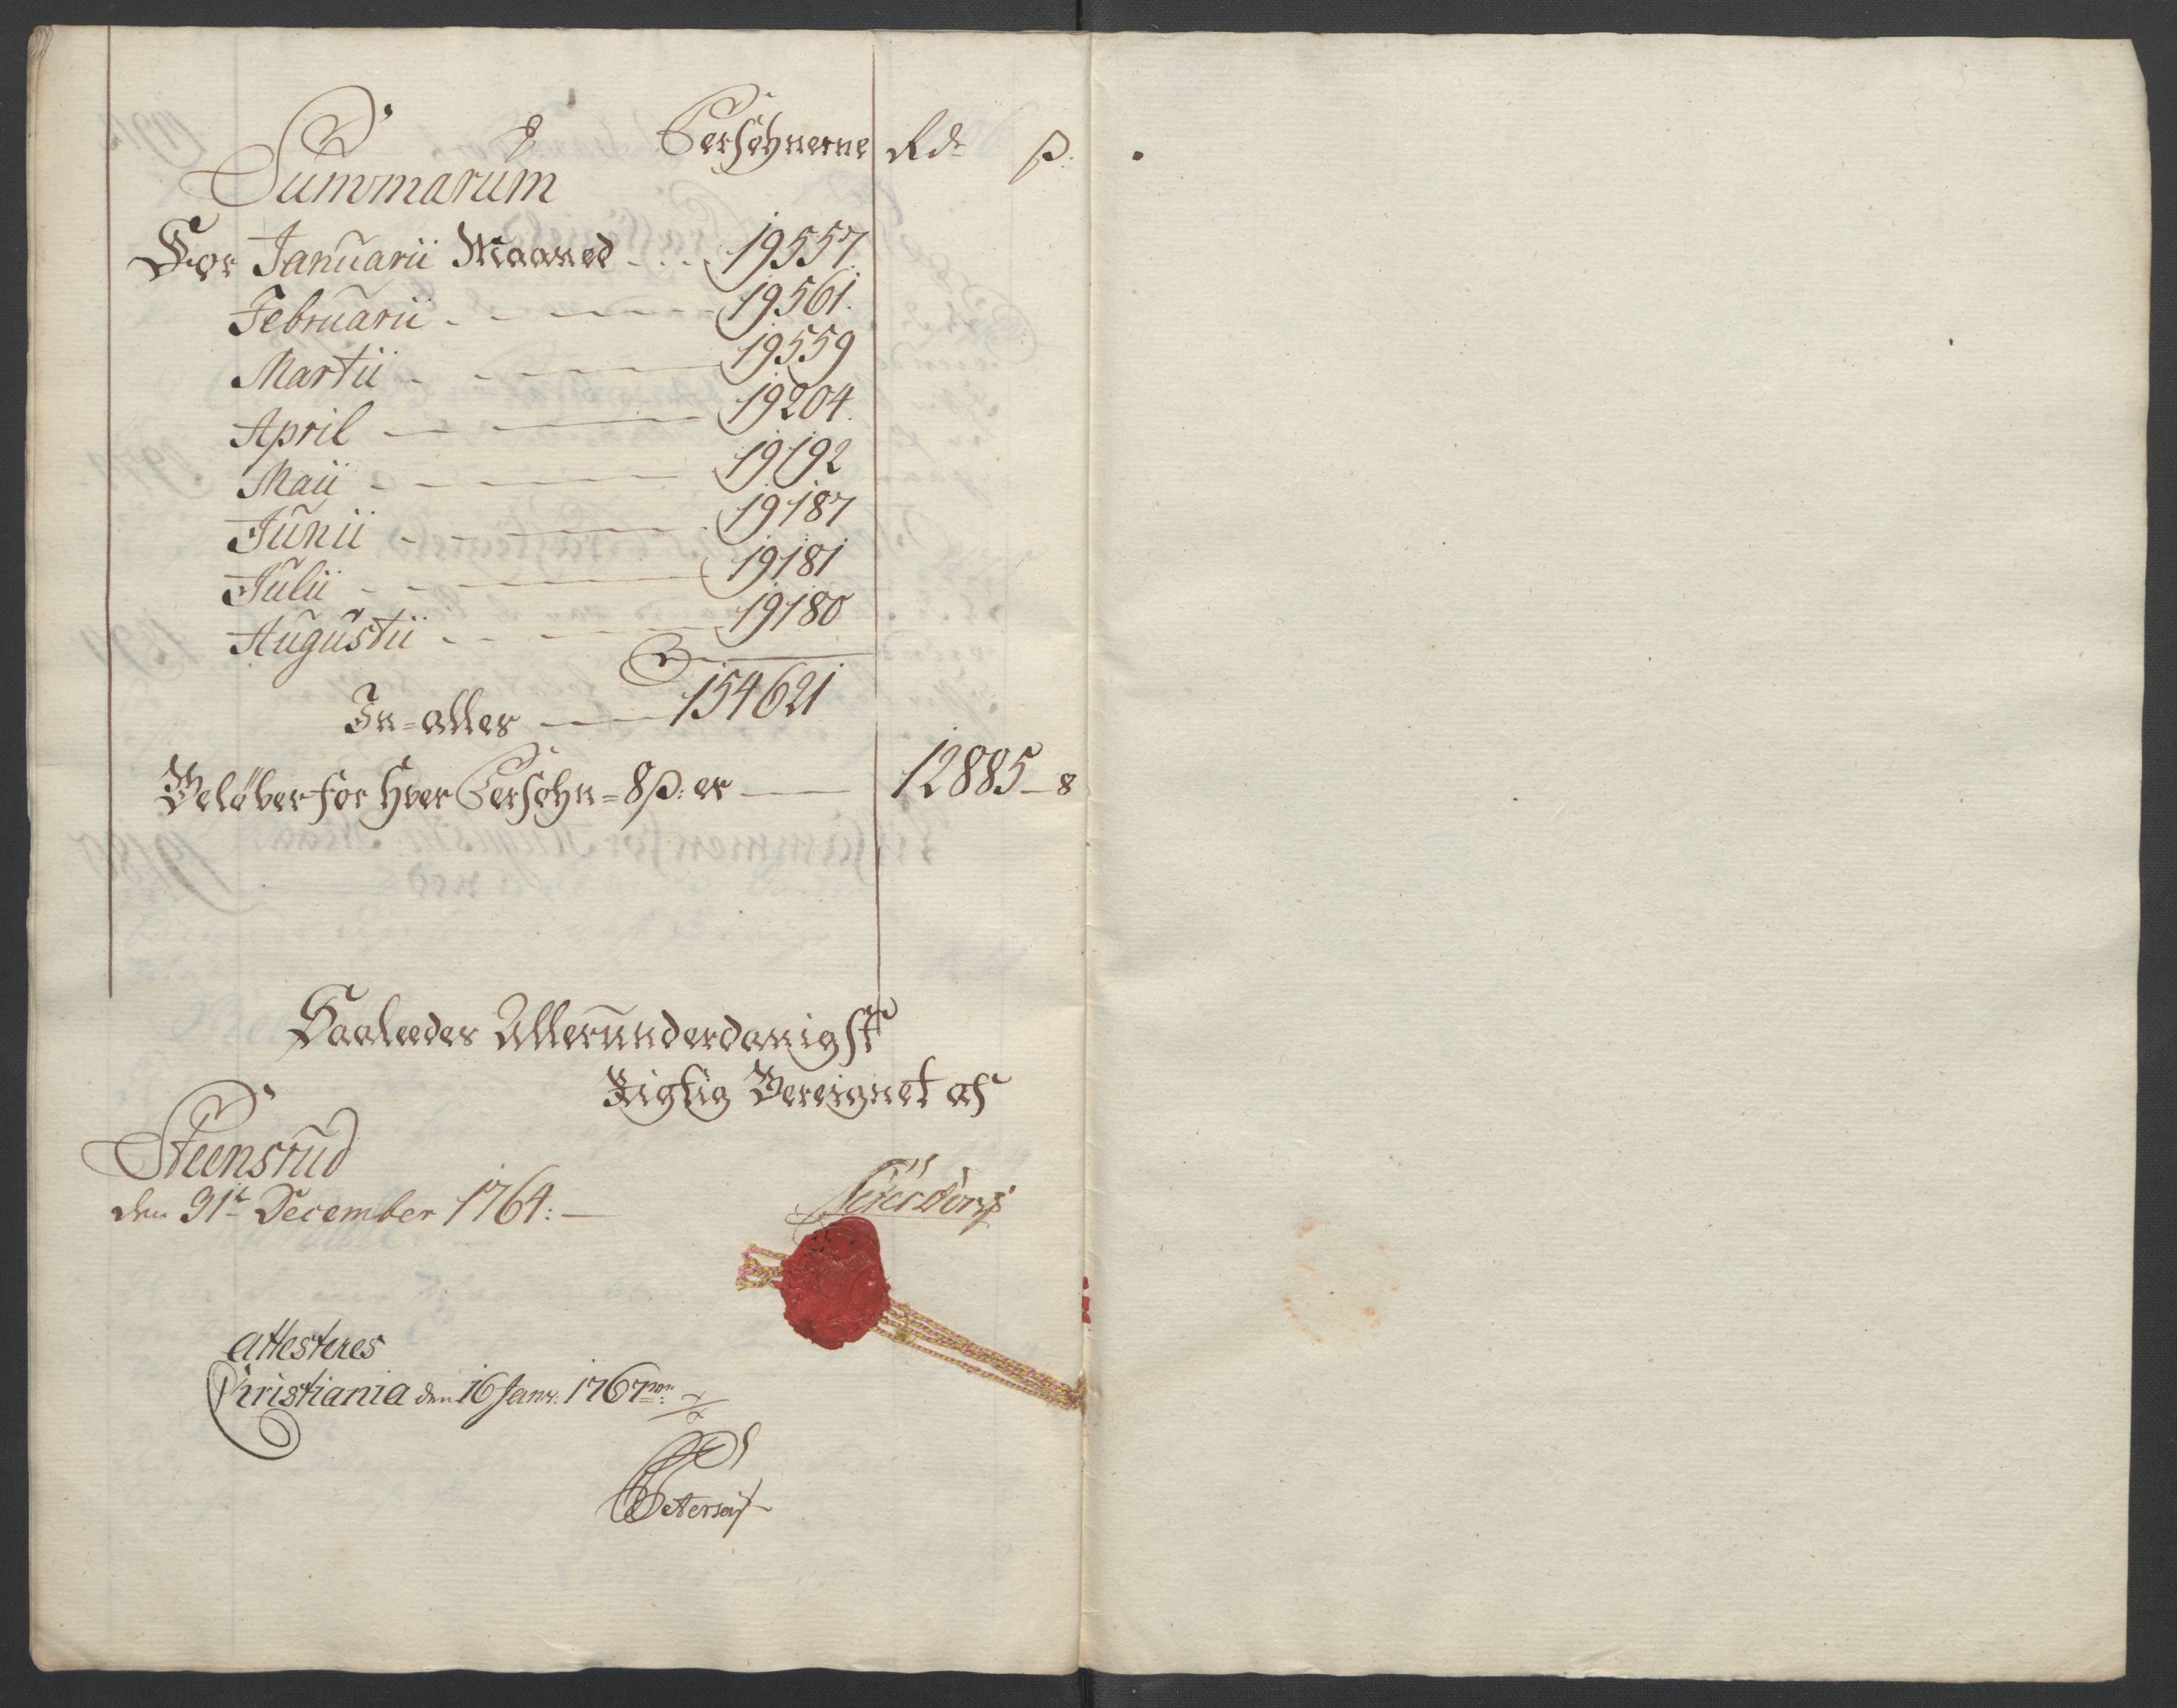 Persohnerne Rd. ß.
Summarum
For Januarii Maaned 19557.
Februarii 19561.
Martii 19559
April 19204.
Maii 19192
Junii 19187
Julii 19181
Augustii 19180
In-alles 154621
Beløber for Hver Persohn = 8 ß: er 12885 - 8
Saaleedes Allerunderdanigst
Rigtig Beregnet af
Steensrud
den 31te December 1764:
attesteres
Christiania den 16 Janr. 1767
Petersen